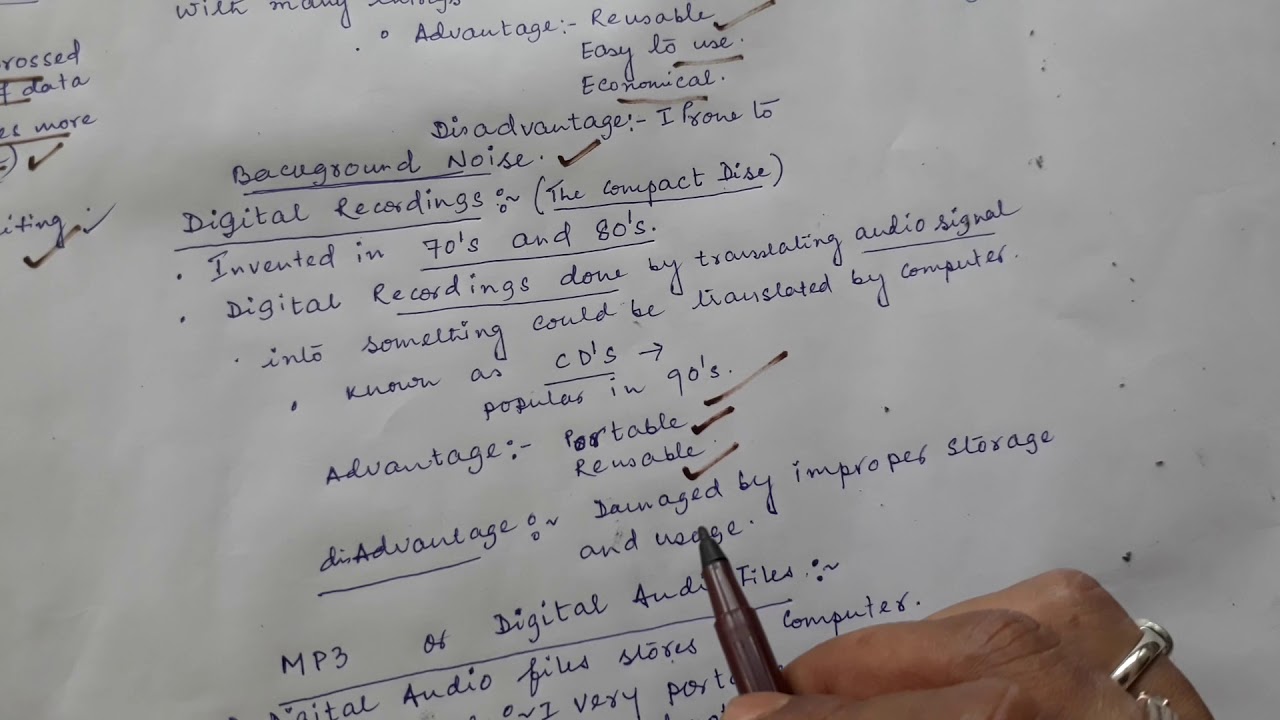 with many
• Advantage:- Reusable
Easy to use.
Economical.
Disadvantage:- I Prone to
Background Noise.
Digital Recordings :~ (The Compact Disc)
• Invented in 70's and 80's.
• Digital Recordings done by translating audio signal
• into something could be translated by computer.
• Known as CD'S →
popular in 90's.
Advantage:- Portable
Reusable.
disAdvantage :~ Damaged by improper storage
and usage.
MP3 or Digital Audio Files :~
Digital Audio files stores computer.
:~ I very
rossed
data
es more
iting :